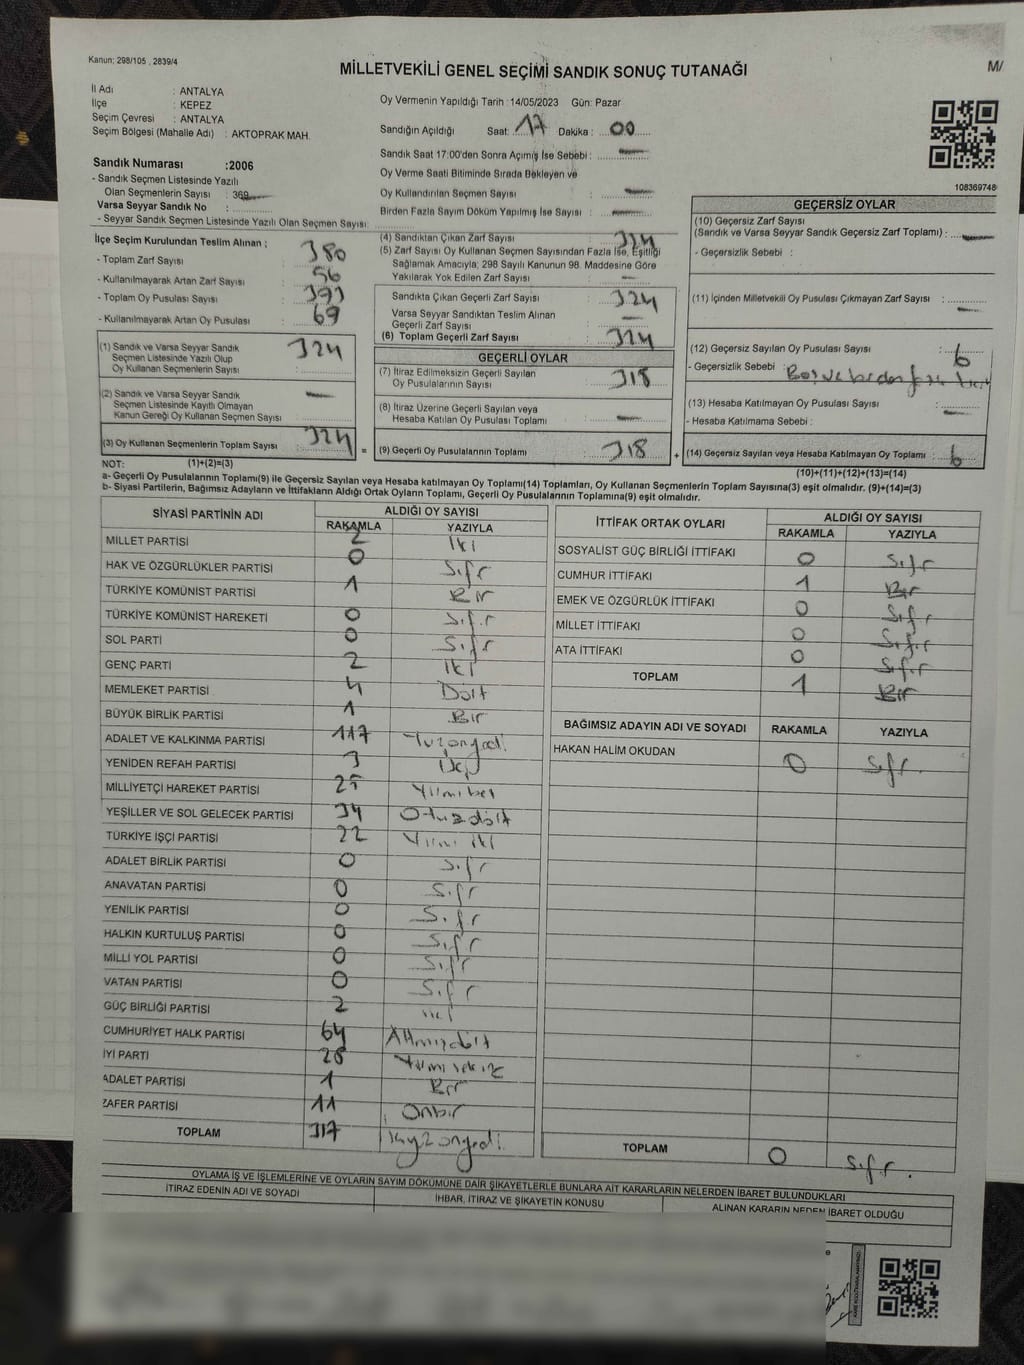 Kanun: 298/105 , 2839/4
MİLLETVEKİLİ GENEL SEÇİMİ SANDIK SONUÇ TUTANAĞI
M/
İl Adı : ANTALYA
İlçe : KEPEZ
Seçim Çevresi : ANTALYA
Seçim Bölgesi (Mahalle Adı) : AKTOPRAK MAH.
Oy Vermenin Yapıldığı Tarih :14/05/2023 Gün: Pazar
Sandığın Açıldığı Saat: 17 Dakika : 00
Sandık Saat 17:00'den Sonra Açımış İse Sebebi :
Oy Verme Saati Bitiminde Sırada Bekleyen ve
Oy Kullandırılan Seçmen Sayısı :
Birden Fazla Sayım Döküm Yapılmış İse Sayısı :
108369748
Sandık Numarası :2006
- Sandık Seçmen Listesinde Yazılı
Olan Seçmenlerin Sayısı : 369
Varsa Seyyar Sandık No :
- Seyyar Sandık Seçmen Listesinde Yazılı Olan Seçmen Sayısı:
İlçe Seçim Kurulundan Teslim Alınan ;
- Toplam Zarf Sayısı : 380
- Kullanılmayarak Artan Zarf Sayısı : 56
- Toplam Oy Pusulası Sayısı : 393
- Kullanılmayarak Artan Oy Pusulası : 69
(1) Sandık ve Varsa Seyyar Sandık
Seçmen Listesinde Yazılı Olup
Oy Kullanan Seçmenlerin Sayısı : 324
(2) Sandık ve Varsa Seyyar Sandık
Seçmen Listesinde Kayıtlı Olmayan
Kanun Gereği Oy Kullanan Seçmen Sayısı :
(3) Oy Kullanan Seçmenlerin Toplam Sayısı : 324
(4) Sandıktan Çıkan Zarf Sayısı : 324
(5) Zarf Sayısı Oy Kullanan Seçmen Sayısından Fazla İse, Eşitliği
Sağlamak Amacıyla; 298 Sayılı Kanunun 98. Maddesine Göre
Yakılarak Yok Edilen Zarf Sayısı :
Sandıkta Çıkan Geçerli Zarf Sayısı : 324
Varsa Seyyar Sandıktan Teslim Alınan
Geçerli Zarf Sayısı :
(6) Toplam Geçerli Zarf Sayısı : 324
GEÇERLİ OYLAR
(7) İtiraz Edilmeksizin Geçerli Sayılan
Oy Pusulalarının Sayısı : 318
(8) İtiraz Üzerine Geçerli Sayılan veya
Hesaba Katılan Oy Pusulası Toplamı :
= (9) Geçerli Oy Pusulalarının Toplamı : 318 +
GEÇERSİZ OYLAR
(10) Geçersiz Zarf Sayısı
(Sandık ve Varsa Seyyar Sandık Geçersiz Zarf Toplamı) :
- Geçersizlik Sebebi :
(11) İçinden Milletvekili Oy Pusulası Çıkmayan Zarf Sayısı :
(12) Geçersiz Sayılan Oy Pusulası Sayısı : 6
- Geçersizlik Sebebi : Boş ve birden fazla
(13) Hesaba Katılmayan Oy Pusulası Sayısı :
- Hesaba Katılmama Sebebi :
(14) Geçersiz Sayılan veya Hesaba Katılmayan Oy Toplamı : 6
NOT: (1)+(2)=(3)
(10)+(11)+(12)+(13)=(14)
a- Geçerli Oy Pusulalarının Toplamı(9) ile Geçersiz Sayılan veya Hesaba katılmayan Oy Toplamı(14) Toplamları, Oy Kullanan Seçmenlerin Toplam Sayısına(3) eşit olmalıdır. (9)+(14)=(3)
b- Siyasi Partilerin, Bağımsız Adayların ve İttifakların Aldığı Ortak Oyların Toplamı, Geçerli Oy Pusulalarının Toplamına(9) eşit olmalıdır.
SİYASİ PARTİNİN ADI ALDIĞI OY SAYISI
RAKAMLA YAZIYLA
MİLLET PARTİSİ 2 İki
HAK VE ÖZGÜRLÜKLER PARTİSİ 0 Sıfır
TÜRKİYE KOMÜNİST PARTİSİ 1 Bir
TÜRKİYE KOMÜNİST HAREKETİ 0 Sıfır
SOL PARTİ 0 Sıfır
GENÇ PARTİ 2 İki
MEMLEKET PARTİSİ 4 Dört
BÜYÜK BİRLİK PARTİSİ 1 Bir
ADALET VE KALKINMA PARTİSİ 117 Yüzonyedi
YENİDEN REFAH PARTİSİ 3 Üç
MİLLİYETÇİ HAREKET PARTİSİ 25 Yirmibeş
YEŞİLLER VE SOL GELECEK PARTİSİ 34 Otuzdört
TÜRKİYE İŞÇİ PARTİSİ 22 Yirmi iki
ADALET BİRLİK PARTİSİ 0 Sıfır
ANAVATAN PARTİSİ 0 Sıfır
YENİLİK PARTİSİ 0 Sıfır
HALKIN KURTULUŞ PARTİSİ 0 Sıfır
MİLLİ YOL PARTİSİ 0 Sıfır
VATAN PARTİSİ 0 Sıfır
GÜÇ BİRLİĞİ PARTİSİ 2 iki
CUMHURİYET HALK PARTİSİ 64 Altmışdört
İYİ PARTİ 28 Yirmi sekiz
ADALET PARTİSİ 1 Bir
ZAFER PARTİSİ 11 Onbir
TOPLAM 317 Üçyüzonyedi
İTTİFAK ORTAK OYLARI ALDIĞI OY SAYISI
RAKAMLA YAZIYLA
SOSYALİST GÜÇ BİRLİĞİ İTTİFAKI 0 Sıfır
CUMHUR İTTİFAKI 1 Bir
EMEK VE ÖZGÜRLÜK İTTİFAKI 0 Sıfır
MİLLET İTTİFAKI 0 Sıfır
ATA İTTİFAKI 0 Sıfır
TOPLAM 1 Bir
BAĞIMSIZ ADAYIN ADI VE SOYADI RAKAMLA YAZIYLA
HAKAN HALİM OKUDAN 0 Sıfır
TOPLAM 0 Sıfır
OYLAMA İŞ VE İŞLEMLERİNE VE OYLARIN SAYIM DÖKÜMÜNE DAİR ŞİKAYETLERLE BUNLARA AİT KARARLARIN NELERDEN İBARET BULUNDUKLARI
İTİRAZ EDENİN ADI VE SOYADI İHBAR, İTİRAZ VE ŞİKAYETİN KONUSU ALINAN KARARIN NEDEN İBARET OLDUĞU